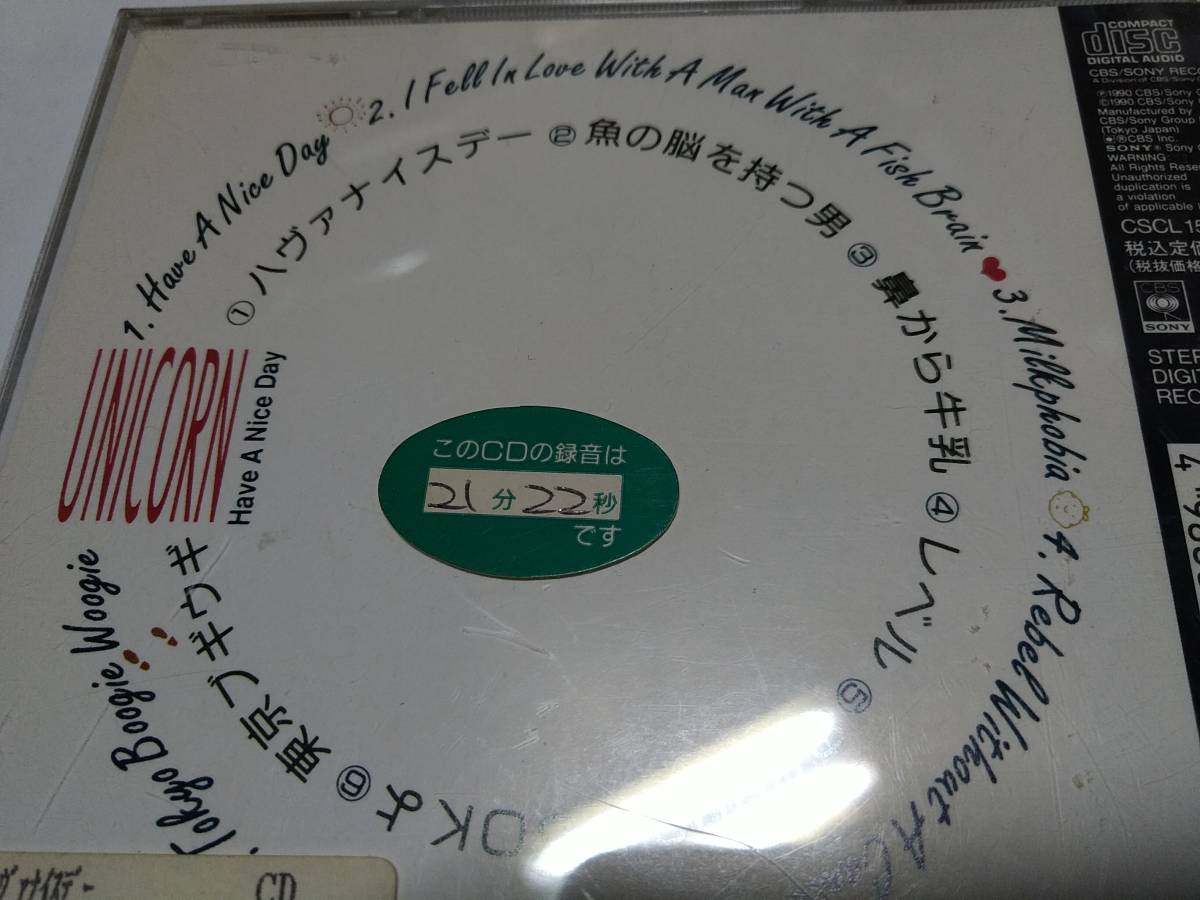 1. Have A Nice Day
2. I Fell In Love With A Man With A Fish Brain
3. Milkphobia
4. Rebel Without A
Tokyo Boogie Woogie
① ハヴァナイスデー
② 魚の脳を持つ男
③ 鼻から牛乳
④ レベル
⑤
OKよ
⑥ 東京ブギウギ
UNICORN
Have A Nice Day
このCDの録音は
21分22秒
です
COMPACT
disc
DIGITAL AUDIO
CBS/SONY
A Division of CBS/Sony
Ⓟ1990 CBS/Sony
©1990 CBS/Sony
Manufactured by
CBS/Sony Group
(Tokyo Japan)
CBS Inc.
SONY® Sony
WARNING
All Rights
Unauthorized
duplication is
a violation
of applicable
CSCL 15
税込定価
(税抜価格
CBS
SONY
4
CD